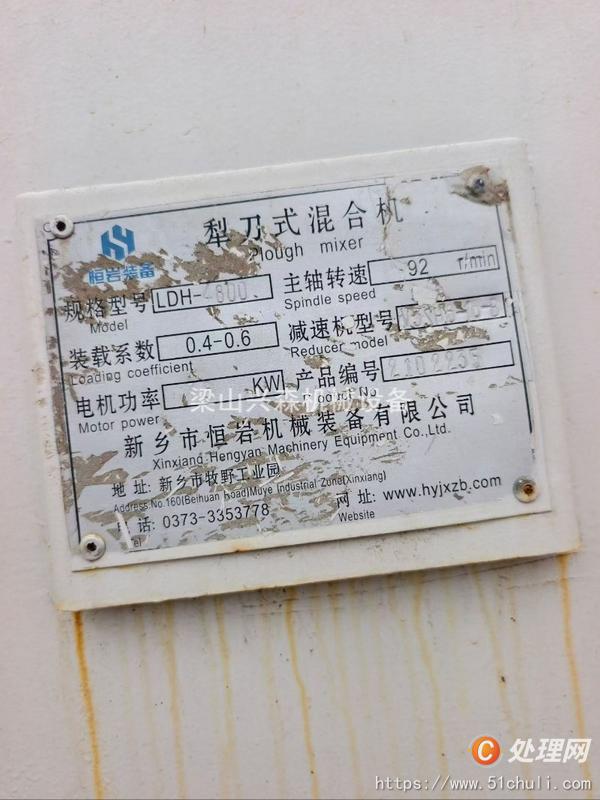 恒岩装备
犁刀式混合机
Plough mixer
规格型号 LDH-4800
Model
主轴转速 92 r/min
Spindle speed
装载系数 0.4-0.6
Loading coefficient
减速机型号
Reducer model
电机功率 KW
Motor power
产品编号 2102235
Product No
梁山兴森机械设备
新乡市恒岩机械装备有限公司
Xinxiang Hengyan Machinery Equipment Co.,Ltd.
地址: 新乡市牧野工业园
Address:No.160(Beihuan Road)Muye Industrial Zone(Xinxiang)
话: 0373-3353778
网址: www.hyjxzb.com
Website
C 处理网
https://www.51chuli.com/